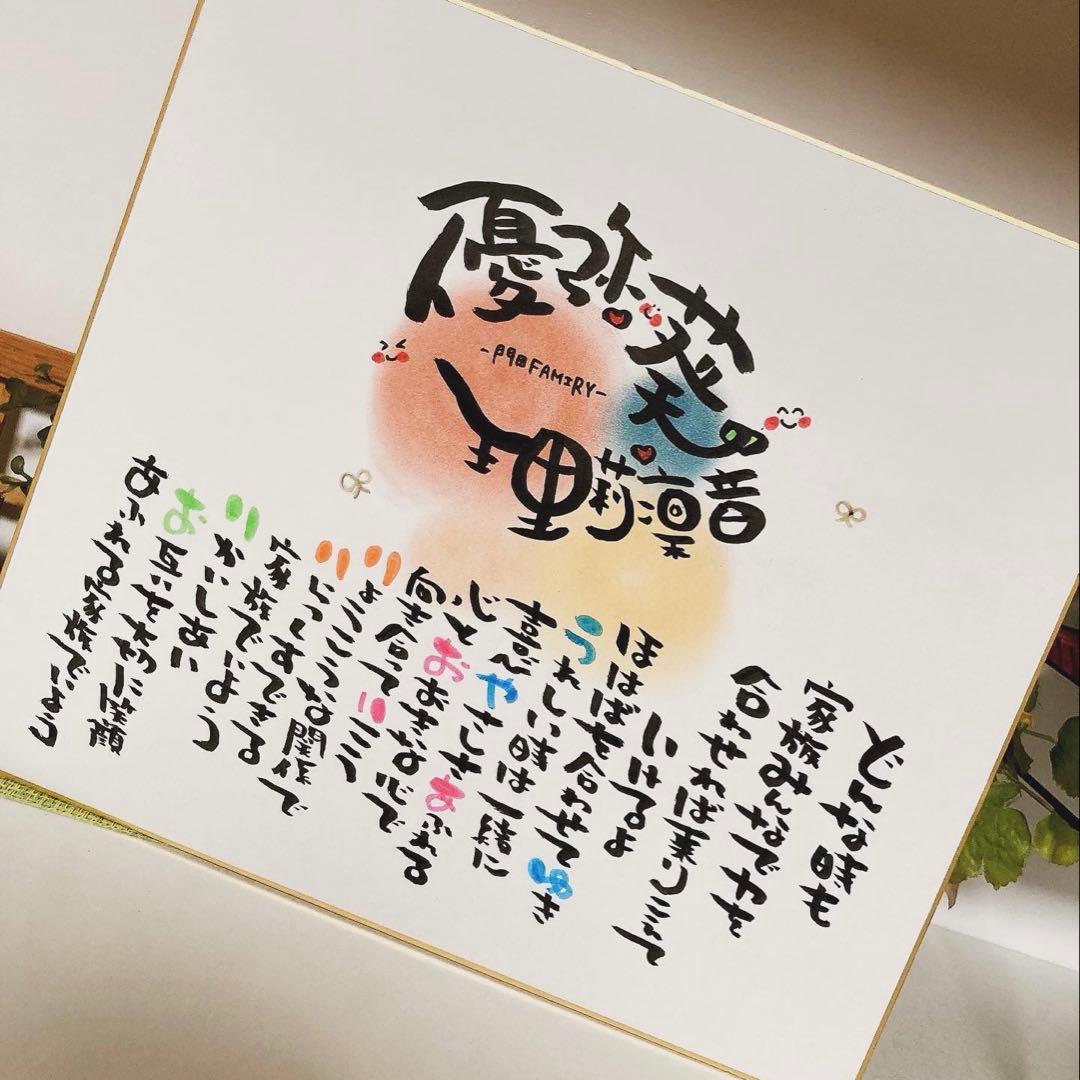 優弥葵天
理莉凛音
-門田FAMIRY-
どんな時も
家族みんなで力を
合わせれば乗りこえて
いけるよ
ほはばを合わせてゆき
うれしい時は一緒に
喜び やさしさあふれる
心とおおきな心で
向き合っていこう
りょうこうな関係で
できる
家族でいよう
りかいしあい
お互いを大切に笑顔
あふれる家族でいよう